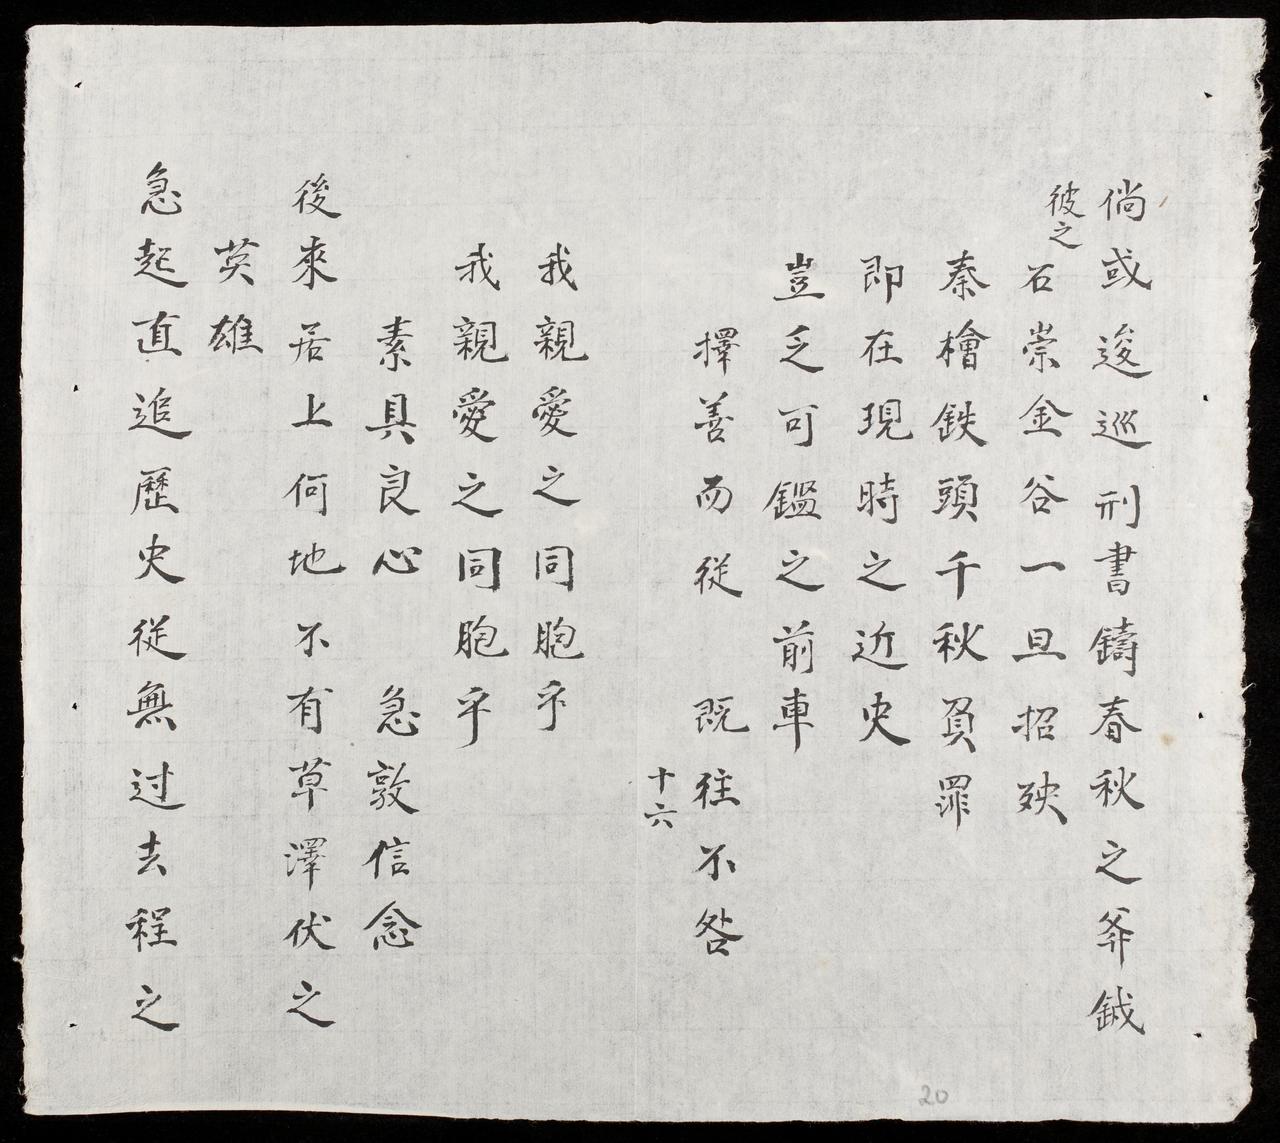 倘或逡巡刑書鑄春秋之斧鉞
彼之
石崇金谷一旦招殃
秦檜鉄頭千秋負罪
即在現時之近史
豈乏可鑑之前車
擇善而從 既往不咎
十六
我親愛之同胞乎
我親愛之同胞乎
素具良心 急敦信念
後來居上何地不有草澤伏之
英雄
急起直追歷史從無过去程之
20